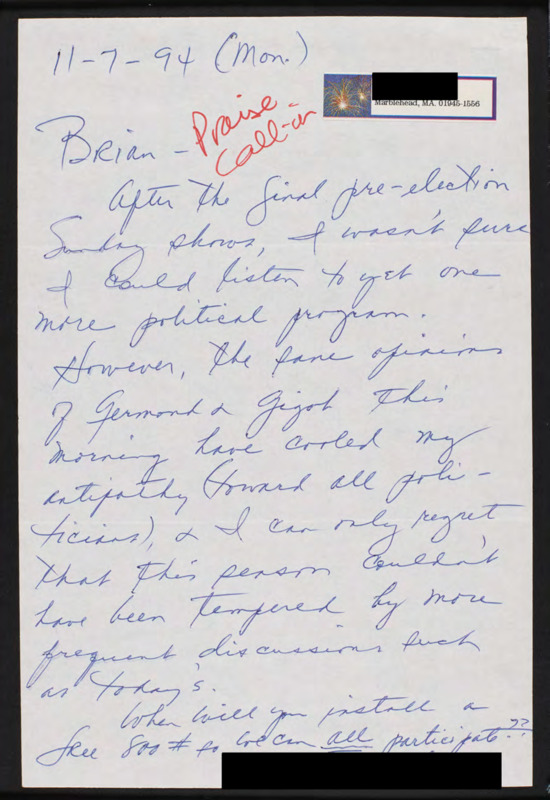 11-7-94 (Mon.)
Marblehead, MA. 01945-1556
Praise
Call-in
Brian -
After the final pre-election
Sunday shows, I wasn't sure
I could listen to yet one
more political program.
However, the sane opinions
of Germond & Gigot this
morning have cooled my
antipathy (toward all poli-
ticians), & I can only regret
that this season couldn't
have been tempered by more
frequent discussions such
as today's.
When will you install a
free 800 # so we can all participate??